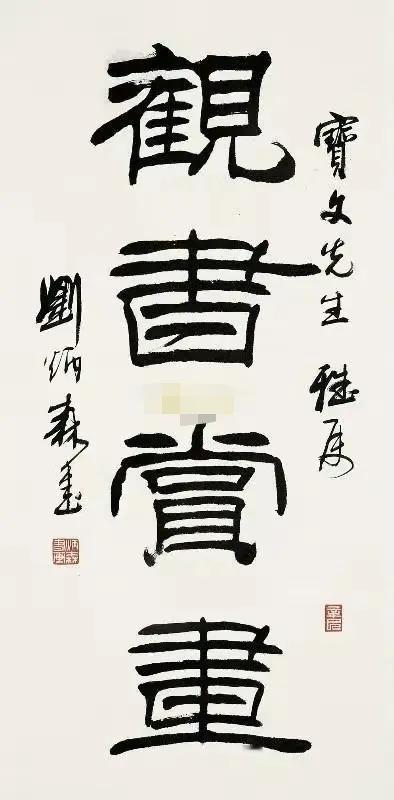 寶文先生 雅属
觀書賞畫
劉炳森書